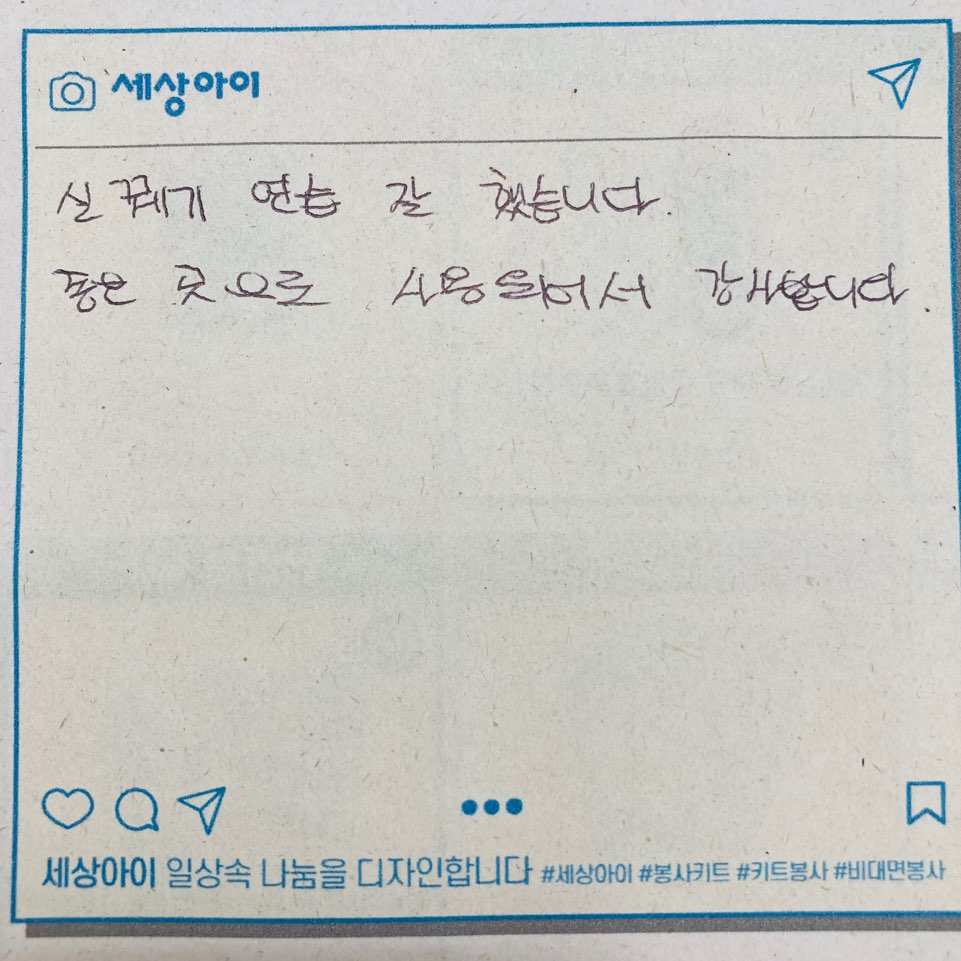 세상아이
실 꿰기 연습 잘 했습니다.
좋은 곳으로 사용되어서 감사합니다.
세상아이 일상속 나눔을 디자인합니다 #세상아이 #봉사키트 #키트봉사 #비대면봉사